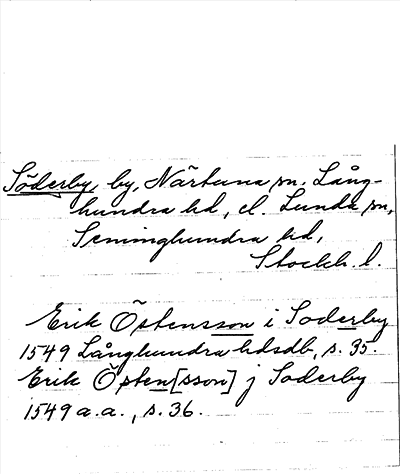 Söderby, by, Närtuna sn. Lång-
hundra hd, el. Lunda sn,
Seminghundra hd,
Stockh. l.
Erik Östensson i Soderby
1549 Långhundra hdsdb, s. 35.
Erik Östen[sson] j Soderby
1549 a.a., s. 36.